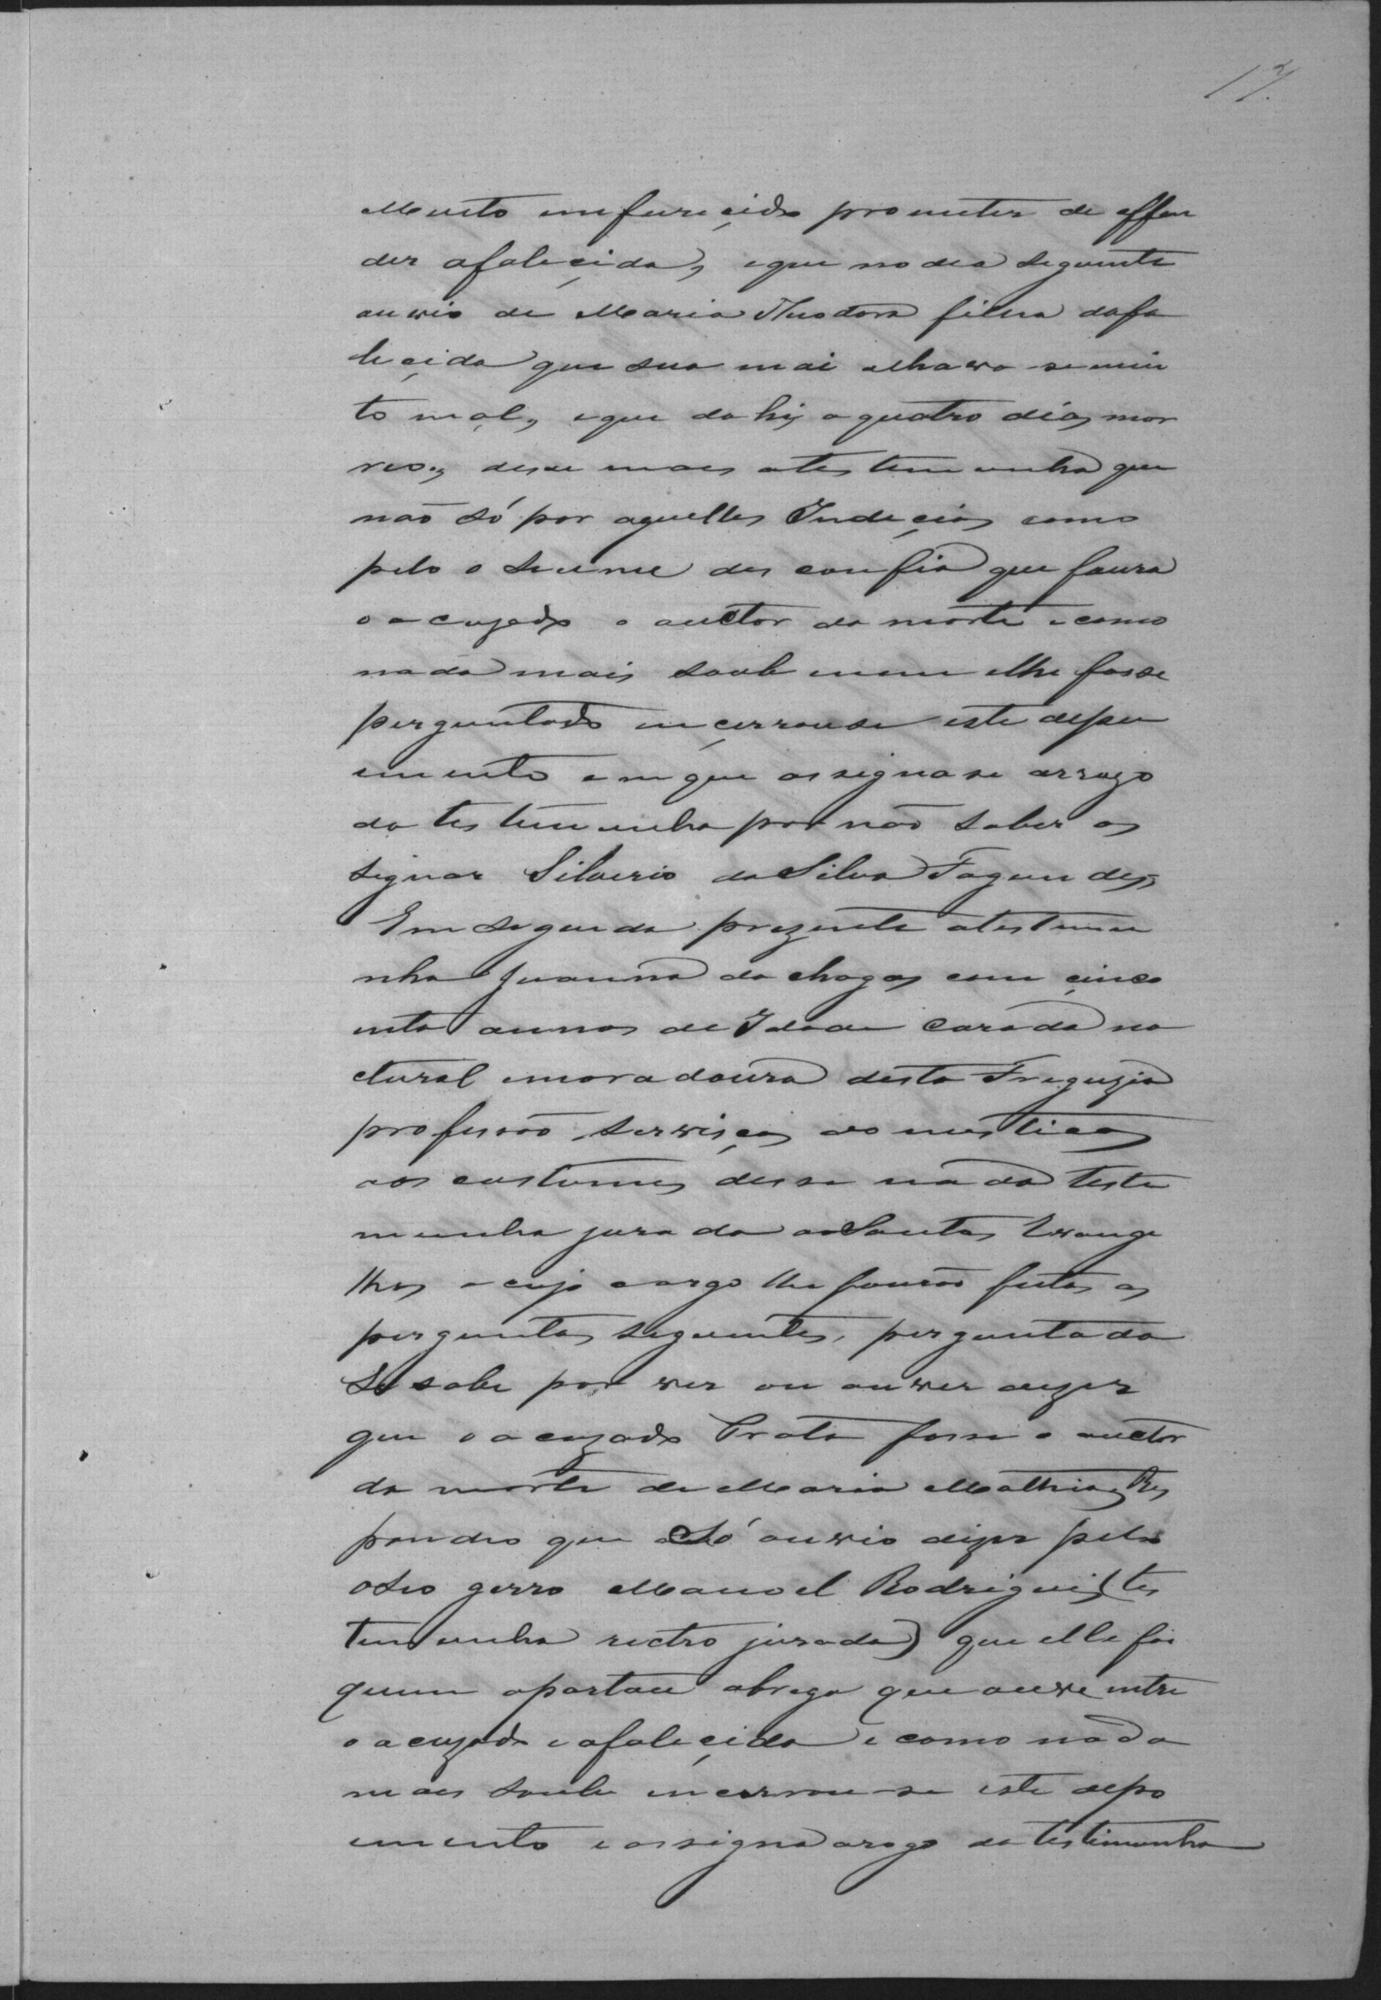 17.
Muito imfureçido prometer de offen
der afaleçida, eque nodea seguinte
auvio de Maria Theodora filha dafa
leçida que sua mai alhava se mui
to mal, eque dahi a quatro dias mor
reo, disse mais atestemunha que
não só por aquelles Indeçios como
pelo o siume desconfia que foura
o acuzado o auctor da morte e como
nada mais soube nem elhe fosse
perguntado inçerrouse este depu
imento em que assignase arrogo
da testemunha por não saber as
signar Silverio da Silva Fagundes,
Em seguida prezente atestemu
nha Juanna da chagas com çinco
enta annos de Idade Cazada na
ctural emoradoura desta Freguzia
profissão serviços domesticos
aos custumes disse nada teste
munha jurada aosSantos Evange
lhos a cujo cargo lhe fourão feitas as
perguntas seguintes, perguntada
se sabe por ver ou ouver dizer
que o acuzado Prata fosse o auctor
da morte de Maria Mathias, Res
pondeo que Só ouvio dizer pelo
oseo gerro Manoel Rodrigues (tes
temunha rectro jurada) que elle foi
quem apartou abriga que ouve entre
o acuzado e afaleçida e como nada
mais soube incerrou-se este depo
imento e assigna arogo da testimunha